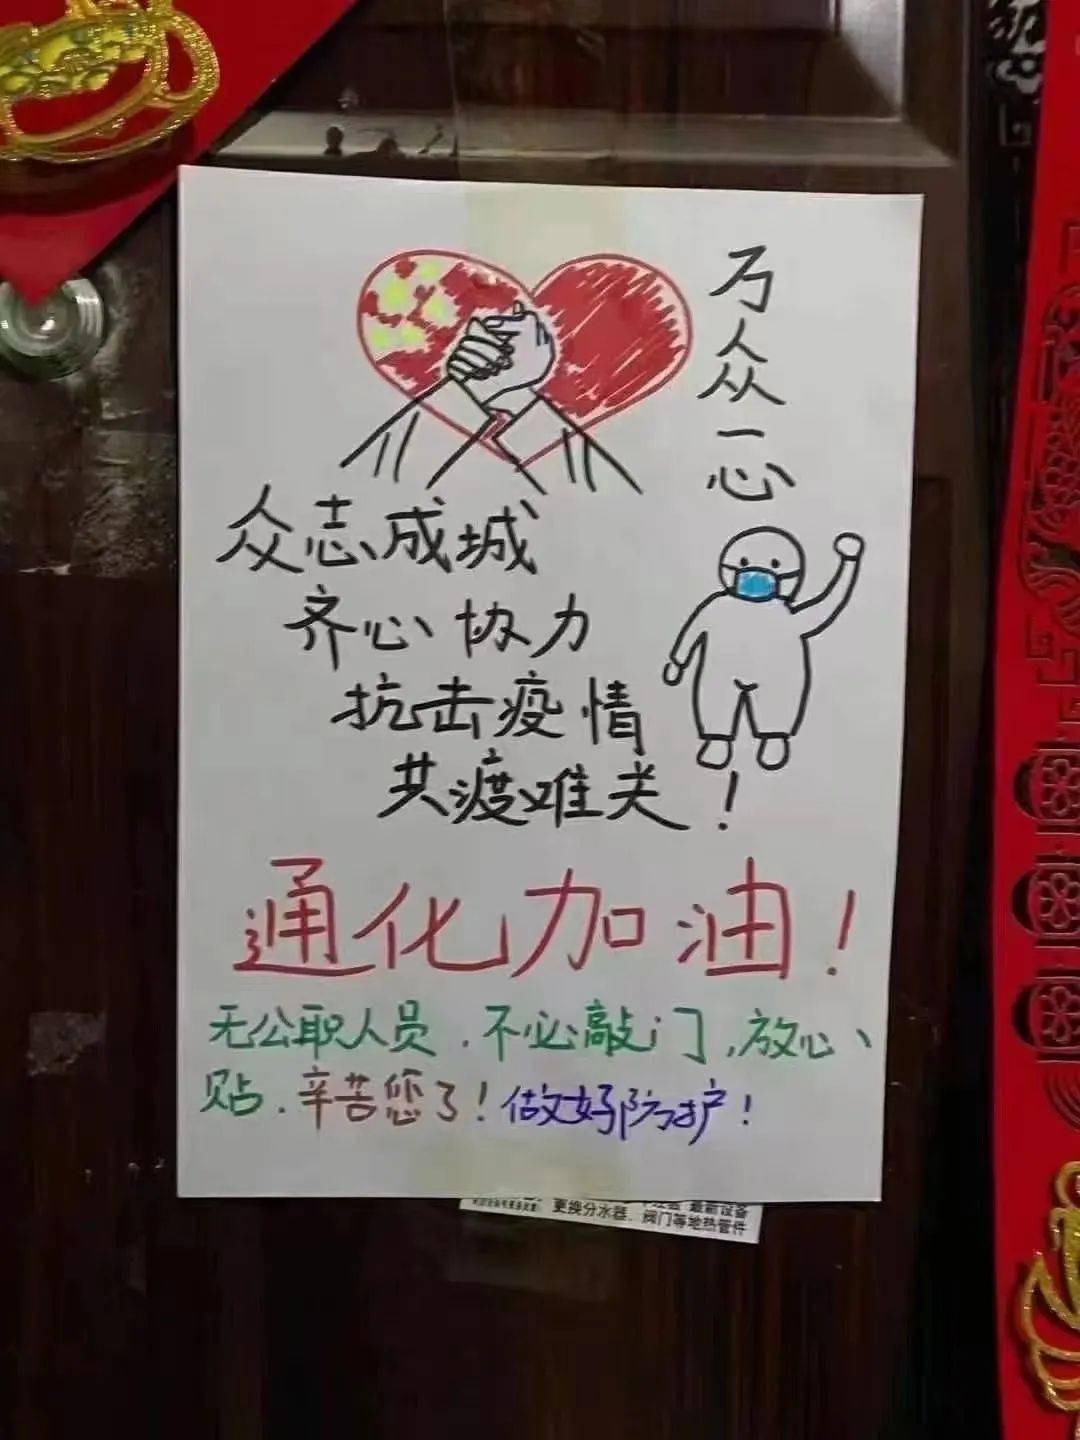 万众一心
众志成城
齐心协力
抗击疫情
共渡难关！
通化加油！
无公职人员，不必敲门，放心
贴，辛苦您了！做好防护！
最新设备
更换分水器、阀门等地热管件